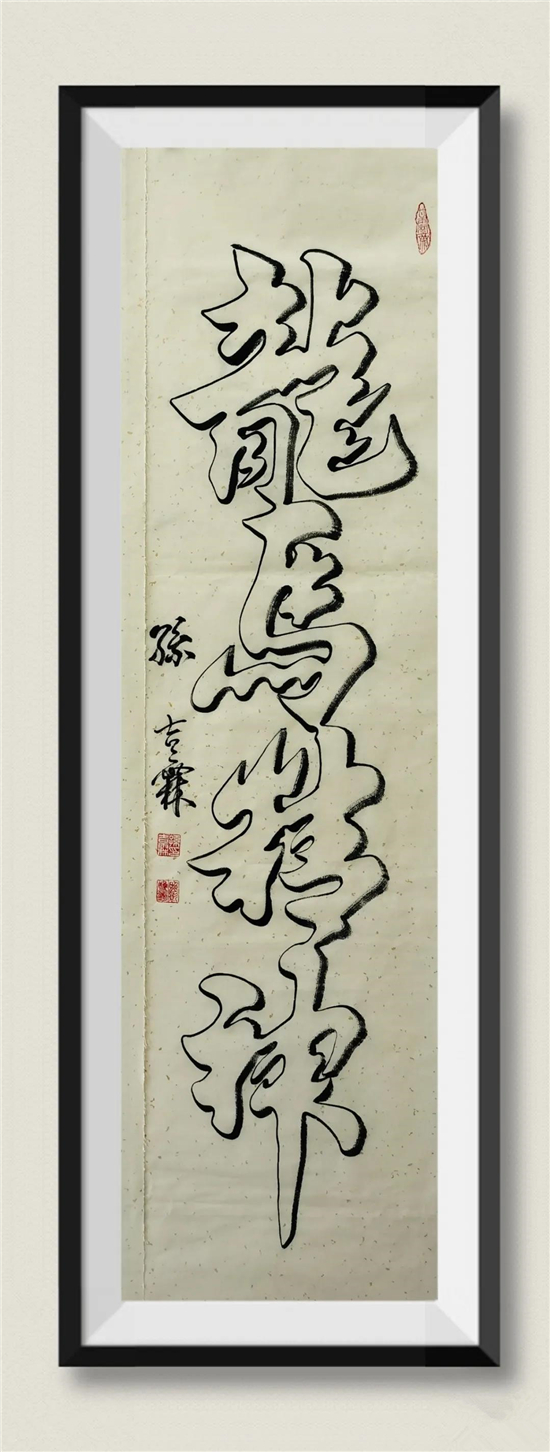 龍馬精神
孫吉霖